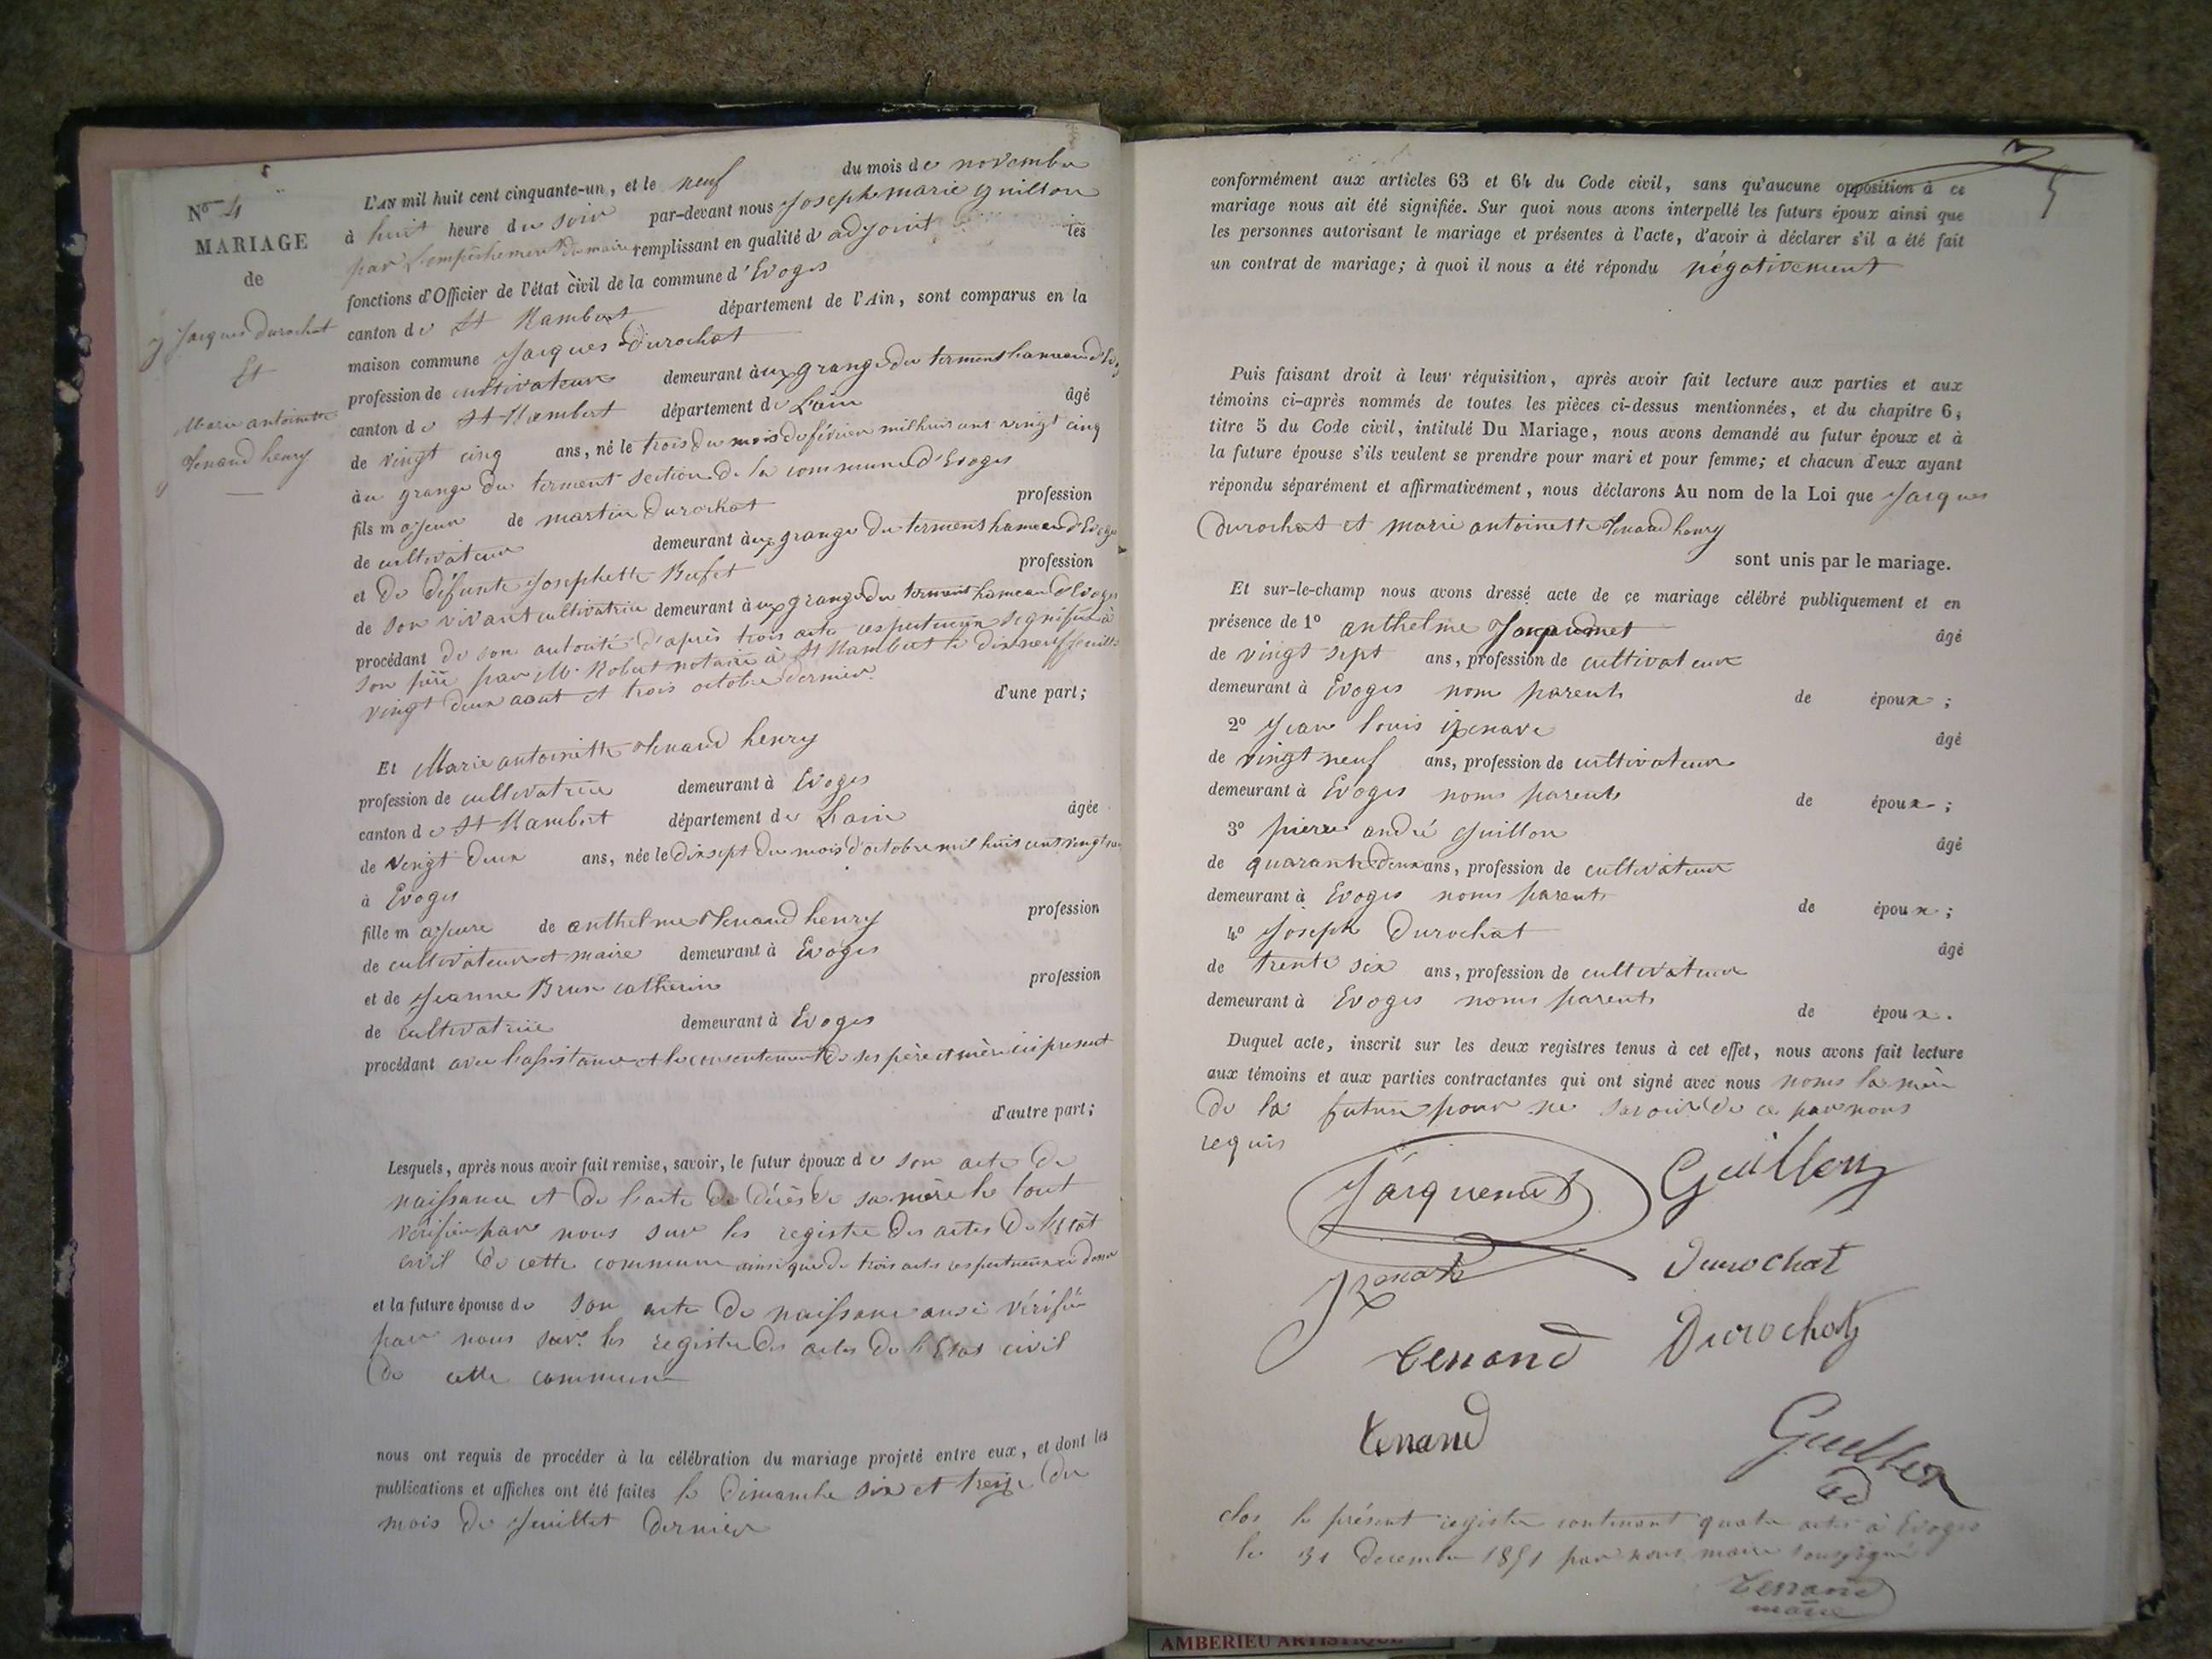 No 4
MARIAGE
de
Jacques Durochat
Et
Marie antoinette
Tenand henry
L'AN mil huit cent cinquante-un, et le neuf du mois de novembre
à huit heure du soir par-devant nous Joseph marie guillon
par l'empêchement du maire remplissant en qualité d'adjoint les
fonctions d'Officier de l'état civil de la commune d'Evoges
canton de St Rambert département de l'Ain, sont comparus en la
maison commune Jacques Durochat
profession de cultivateur demeurant aux granges du terment hameau d'Evoges
canton de St Rambert département de L'ain âgé
de vingt cinq ans, né le trois du mois de février mil huit cent vingt cinq
au grange du terment section de la commune d'Evoges
fils majeur de martin Durochat profession
de cultivateur demeurant aux grange du terment hameau d'Evoges
et de défunte Josephette Bufet profession
de son vivant cultivatrice demeurant aux grange du terment hameau d'Evoges
procédant de son autorité d'après trois acte respectueux signifié à
son père par Me Robert notaire à St Rambert le dix neuf juillet
vingt deux aout et trois octobre dernier. d'une part;
Et Marie antoinette Tenand henry
profession de cultivatrice demeurant à Evoges
canton de St Rambert département de L'ain âgée
de vingt deux ans, née le dix sept du mois d'octobre mil huit cent vingt
à Evoges
fille majeure de anthelme Tenand henry profession
de cultivateur et maire demeurant à Evoges
et de Jeanne Brun catherin profession
de cultivatrice demeurant à Evoges
procédant avec l'assistance et le consentement de ses père et mère ici présent
d'autre part;
Lesquels, après nous avoir fait remise, savoir, le futur époux de son acte de
naissance et de l'acte de décès de sa mère le tout
vérifié par nous sur les registre des actes de l'état
civil de cette commune ainsi que de trois actes respectueux ci dessus
et la future épouse de son acte de naissance aussi vérifié
par nous sur les registre des actes de l'Etat civil
de cette commune
nous ont requis de procéder à la célébration du mariage projeté entre eux, et dont les
publications et affiches ont été faites le dimanche six et treize du
mois de Juillet dernier
5
conformément aux articles 63 et 64 du Code civil, sans qu'aucune opposition à ce
mariage nous ait été signifiée. Sur quoi nous avons interpellé les futurs époux ainsi que
les personnes autorisant le mariage et présentes à l'acte, d'avoir à déclarer s'il a été fait
un contrat de mariage; à quoi il nous a été répondu négativement
Puis faisant droit à leur réquisition, après avoir fait lecture aux parties et aux
témoins ci-après nommés de toutes les pièces ci-dessus mentionnées, et du chapitre 6,
titre 5 du Code civil, intitulé Du Mariage, nous avons demandé au futur époux et à
la future épouse s'ils veulent se prendre pour mari et pour femme; et chacun d'eux ayant
répondu séparément et affirmativement, nous déclarons Au nom de la Loi que Jacques
Durochat et marie antoinette Tenand henry
sont unis par le mariage.
Et sur-le-champ nous avons dressé acte de ce mariage célébré publiquement et en
présence de 1º anthelme Jacquemet âgé
de vingt sept ans, profession de cultivateur
demeurant à Evoges nom parents de époux;
2º Jean louis izenare âgé
de vingt neuf ans, profession de cultivateur
demeurant à Evoges noms parents de époux;
3º pierre andré Guillon âgé
de quarante deux ans, profession de cultivateur
demeurant à Evoges noms parents de époux;
4º Joseph Durochat âgé
de trente six ans, profession de cultivateur
demeurant à Evoges noms parents de époux.
Duquel acte, inscrit sur les deux registres tenus à cet effet, nous avons fait lecture
aux témoins et aux parties contractantes qui ont signé avec nous noms la mère
de la future pour ne savoir de ce par nous
requis
Jacquemet Guillon
Durochat
tenand Durochat
tenand
ad
clos le présent registre contenant quatre actes à Evoges
le 31 decembre 1851 par nous maire soussigné
Tenand
maire
AMBERIEU ARTISTIQUE